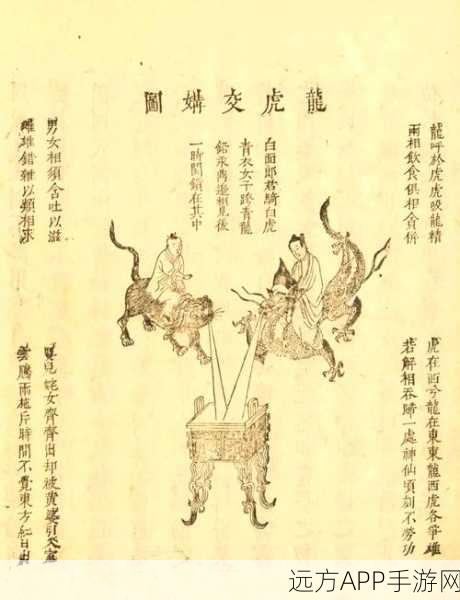 龍虎交媾圖
龍呼於虎虎吸龍精
兩相飲食俱相貪併
白面郎君騎白虎
青衣女子跨青龍
鉛汞鼎邊相見後
一時關鎖在其中
男女相須含吐以滋
雌雄錯雜以類相求
虎在西兮龍在東東龍西虎各爭雄
若解相吞歸一處神仙頃刻不勞功
嬰兒姹女齊齊出却被黃婆引入室
雲騰雨施片時間不覺東方紅日出
远方APP手游网